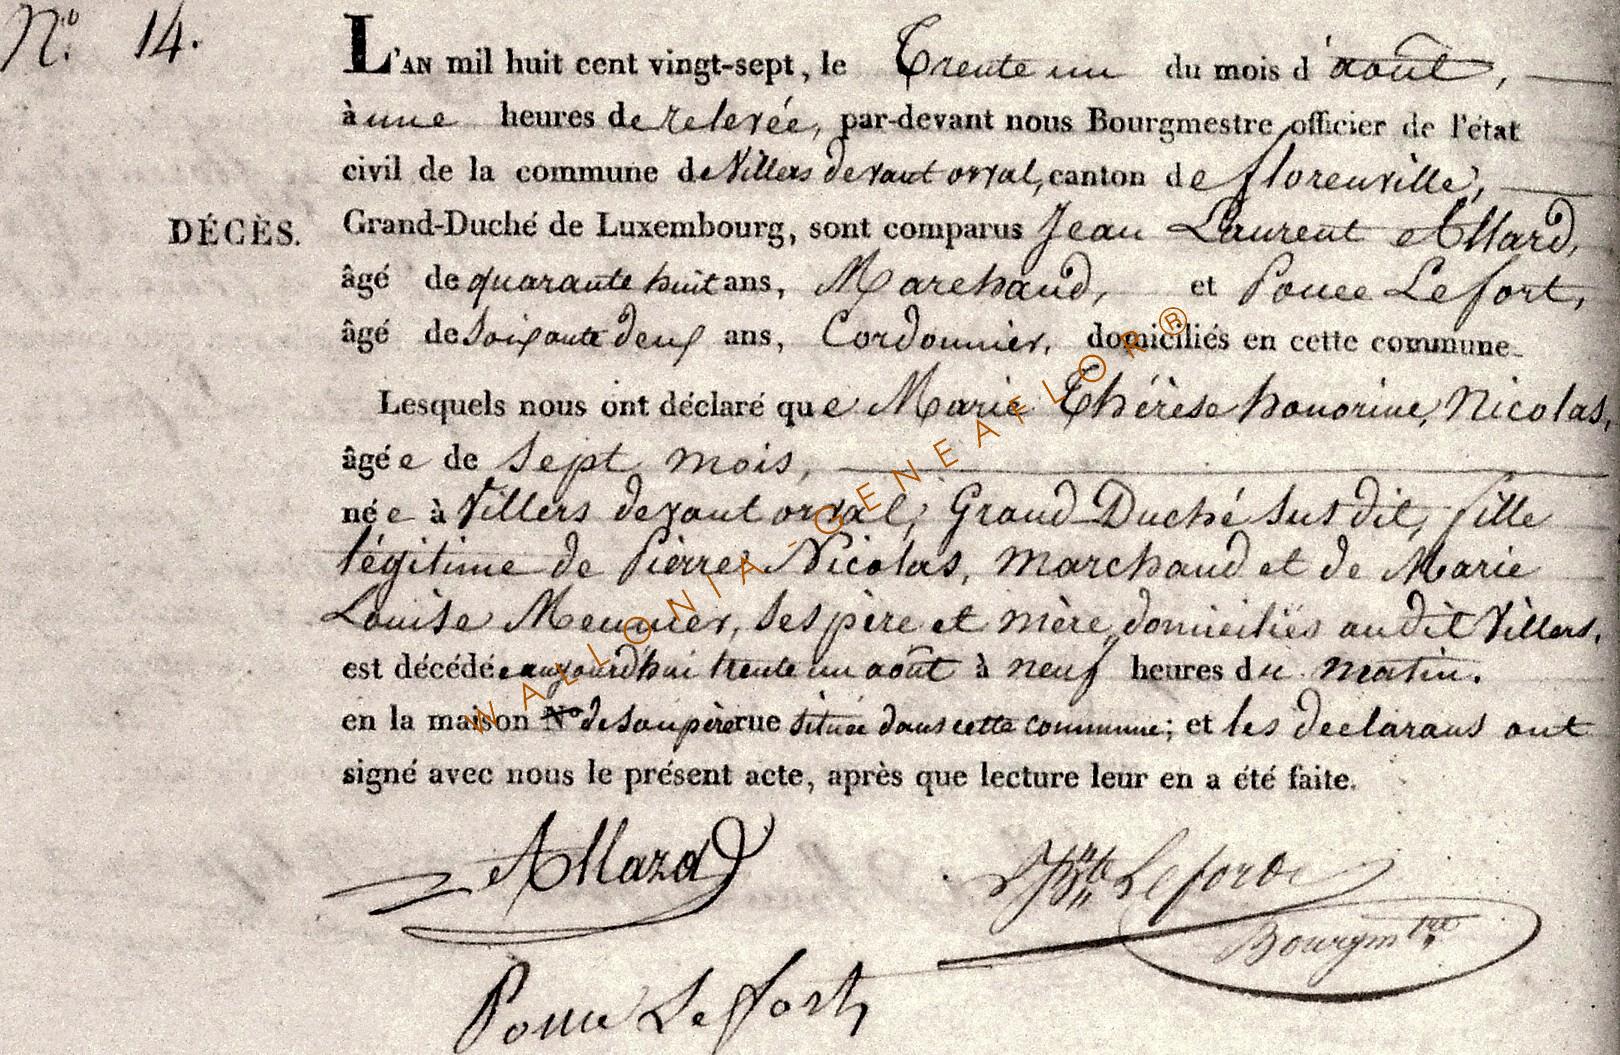 N.º 14.
L'AN mil huit cent vingt-sept, le Trente un du mois d'août,
à une heures de relevée, par-devant nous Bourgmestre officier de l'état
civil de la commune de Villers devant orval, canton de florenville,
DÉCÈS.
Grand-Duché de Luxembourg, sont comparus Jean Laurent Allard,
âgé de quarante huit ans, Marchand, et Ponce Lefort,
âgé de Soixante deux ans, Cordonnier, domiciliés en cette commune.
Lesquels nous ont déclaré que Marie Thérèse honorine, Nicolas,
âgée de Sept mois,
née à Villers devant orval, Grand Duché susdit, fille
légitime de Pierre Nicolas, Marchand et de Marie
Louise Meunier, ses père et mère domiciliés au dit Villers,
est décédée aujourd'hui trente un août à neuf heures du matin.
en la maison N.º de son père rue située dans cette commune; et les declarans ont
signé avec nous le présent acte, après que lecture leur en a été faite.
Allard
Lefort
Bourgmtre
Ponce Lefort
WALLONIA-GENEAFLOR®